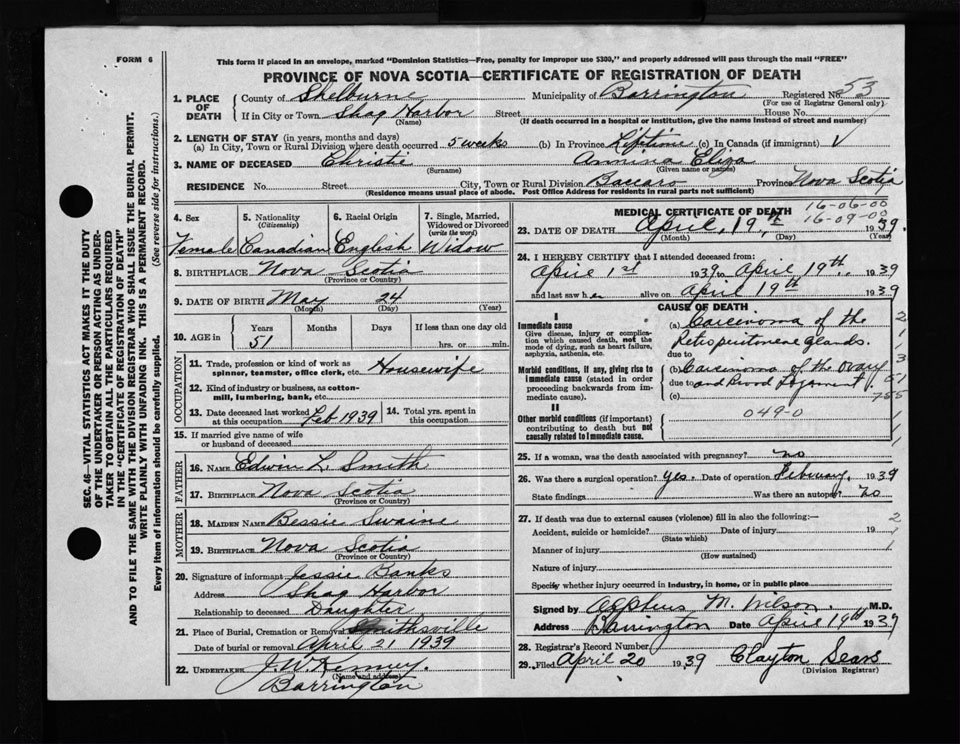 FORM 6
This form if placed in an envelope, marked "Dominion Statistics—Free, penalty for improper use $300," and properly addressed will pass through the mail "FREE"
PROVINCE OF NOVA SCOTIA—CERTIFICATE OF REGISTRATION OF DEATH
53
1. PLACE OF DEATH
County of Shelburne Municipality of Barrington Registered No.
(For use of Registrar General only)
If in City or Town Shag Harbor Street House No.
(Name) (If death occurred in a hospital or institution, give the name instead of street and number)
2. LENGTH OF STAY (in years, months and days)
(a) In City, Town or Rural Division where death occurred 5 weeks (b) In Province Lifetime (c) In Canada (if immigrant)
3. NAME OF DECEASED Christie Annina Eliza
(Surname) (Given name or names)
RESIDENCE No. Street City, Town or Rural Division Baccaro Province Nova Scotia
(Residence means usual place of abode. Post Office Address for residents in rural parts not sufficient)
4. Sex
Female
5. Nationality
(Citizenship)
Canadian
6. Racial Origin
English
7. Single, Married, Widowed or Divorced
(write the word)
Widow
8. BIRTHPLACE Nova Scotia
(Province or Country)
9. DATE OF BIRTH May 24
(Month) (Day) (Year)
10. AGE in
Years Months Days If less than one day old
51 hrs. or min.
OCCUPATION
11. Trade, profession or kind of work as
spinner, teamster, office clerk, etc. Housewife
12. Kind of industry or business, as cotton-
mill, lumbering, bank, etc.
13. Date deceased last worked
at this occupation Feb 1939
14. Total yrs. spent in
this occupation
15. If married give name of wife
or husband of deceased
FATHER
16. NAME Edwin L. Smith
17. BIRTHPLACE Nova Scotia
(Province or Country)
MOTHER
18. MAIDEN NAME Bessie Swaine
19. BIRTHPLACE Nova Scotia
(Province or Country)
20. Signature of informant Jessie Banks
Address Shag Harbor
Relationship to deceased Daughter
21. Place of Burial, Cremation or Removal Smithsville
Date of burial or removal April 21 1939
22. UNDERTAKER J. W. Kenney.
(Name and address)
Barrington
MEDICAL CERTIFICATE OF DEATH
16-06-00
16-09-00
23. DATE OF DEATH April, 19th 1939.
(Month) (Day) (Year)
24. I HEREBY CERTIFY that I attended deceased from:
April 1st 1939 to April 19th. 1939
and last saw her alive on April 19th 1939
CAUSE OF DEATH
I
Immediate cause
Give disease, injury or complica-
tion which caused death, not the
mode of dying, such as heart failure,
asphyxia, asthenia, etc.
(a) Carcinoma of the
Retroperitoneal Glands.
due to
Morbid conditions, if any, giving rise to
immediate cause (stated in order
proceeding backwards from im-
mediate cause).
(b) Carcinoma of the Ovary
due to and Broad Ligament
(c)
II
Other morbid conditions (if important)
contributing to death but not
causally related to immediate cause.
049-0
25. If a woman, was the death associated with pregnancy? no
26. Was there a surgical operation? yes. Date of operation February, 1939
State findings Was there an autopsy? no
27. If death was due to external causes (violence) fill in also the following:—
Accident, suicide or homicide? Date of injury 19
(State which)
Manner of injury
(How sustained)
Nature of injury
Specify whether injury occurred in industry, in home, or in public place
Signed by Alpheus M. Wilson. M.D.
Address Barrington Date April 19th 1939
28. Registrar's Record Number
29. Filed April 20 1939 Clayton Sears
(Division Registrar)
SEC. 46—VITAL STATISTICS ACT MAKES IT THE DUTY
OF THE UNDERTAKER OR PERSON ACTING AS UNDER-
TAKER TO OBTAIN ALL THE PARTICULARS REQUIRED
IN THE "CERTIFICATE OF REGISTRATION OF DEATH"
AND TO FILE THE SAME WITH THE DIVISION REGISTRAR WHO SHALL ISSUE THE BURIAL PERMIT.
WRITE PLAINLY WITH UNFADING INK. THIS IS A PERMANENT RECORD.
Every item of information should be carefully supplied. (See reverse side for instructions.)